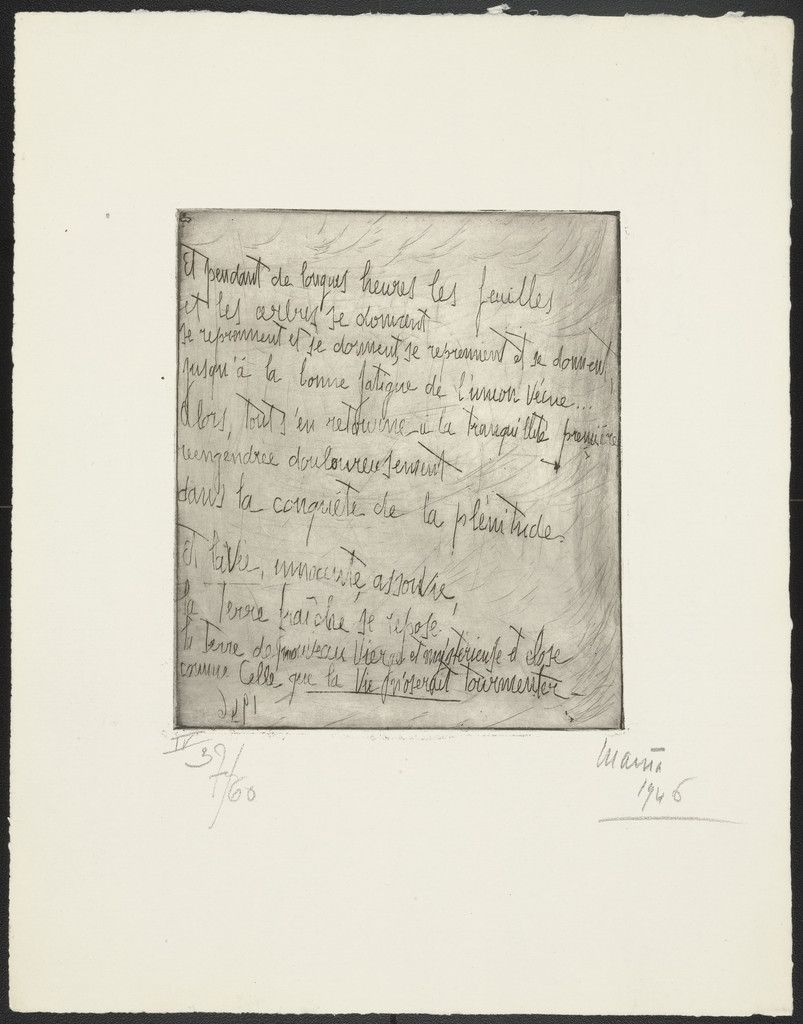 Et pendant de longues heures les feuilles
et les arbres se donnent
se reprennent et se donnent, se reprennent et se donnent,
jusqu'à la bonne fatigue de l'union vécue...
Alors, tout s'en retourne à la tranquillité première
réengendrée douloureusement
dans la conquête de la plénitude.
Et la Vie, innocente, assouvie,
la Terre fraîche se repose,
la Terre de nouveau Vierge et mystérieuse et close
comme Celle que la Vie n'oserait tourmenter
IV 39/
T/60
Maria
1946